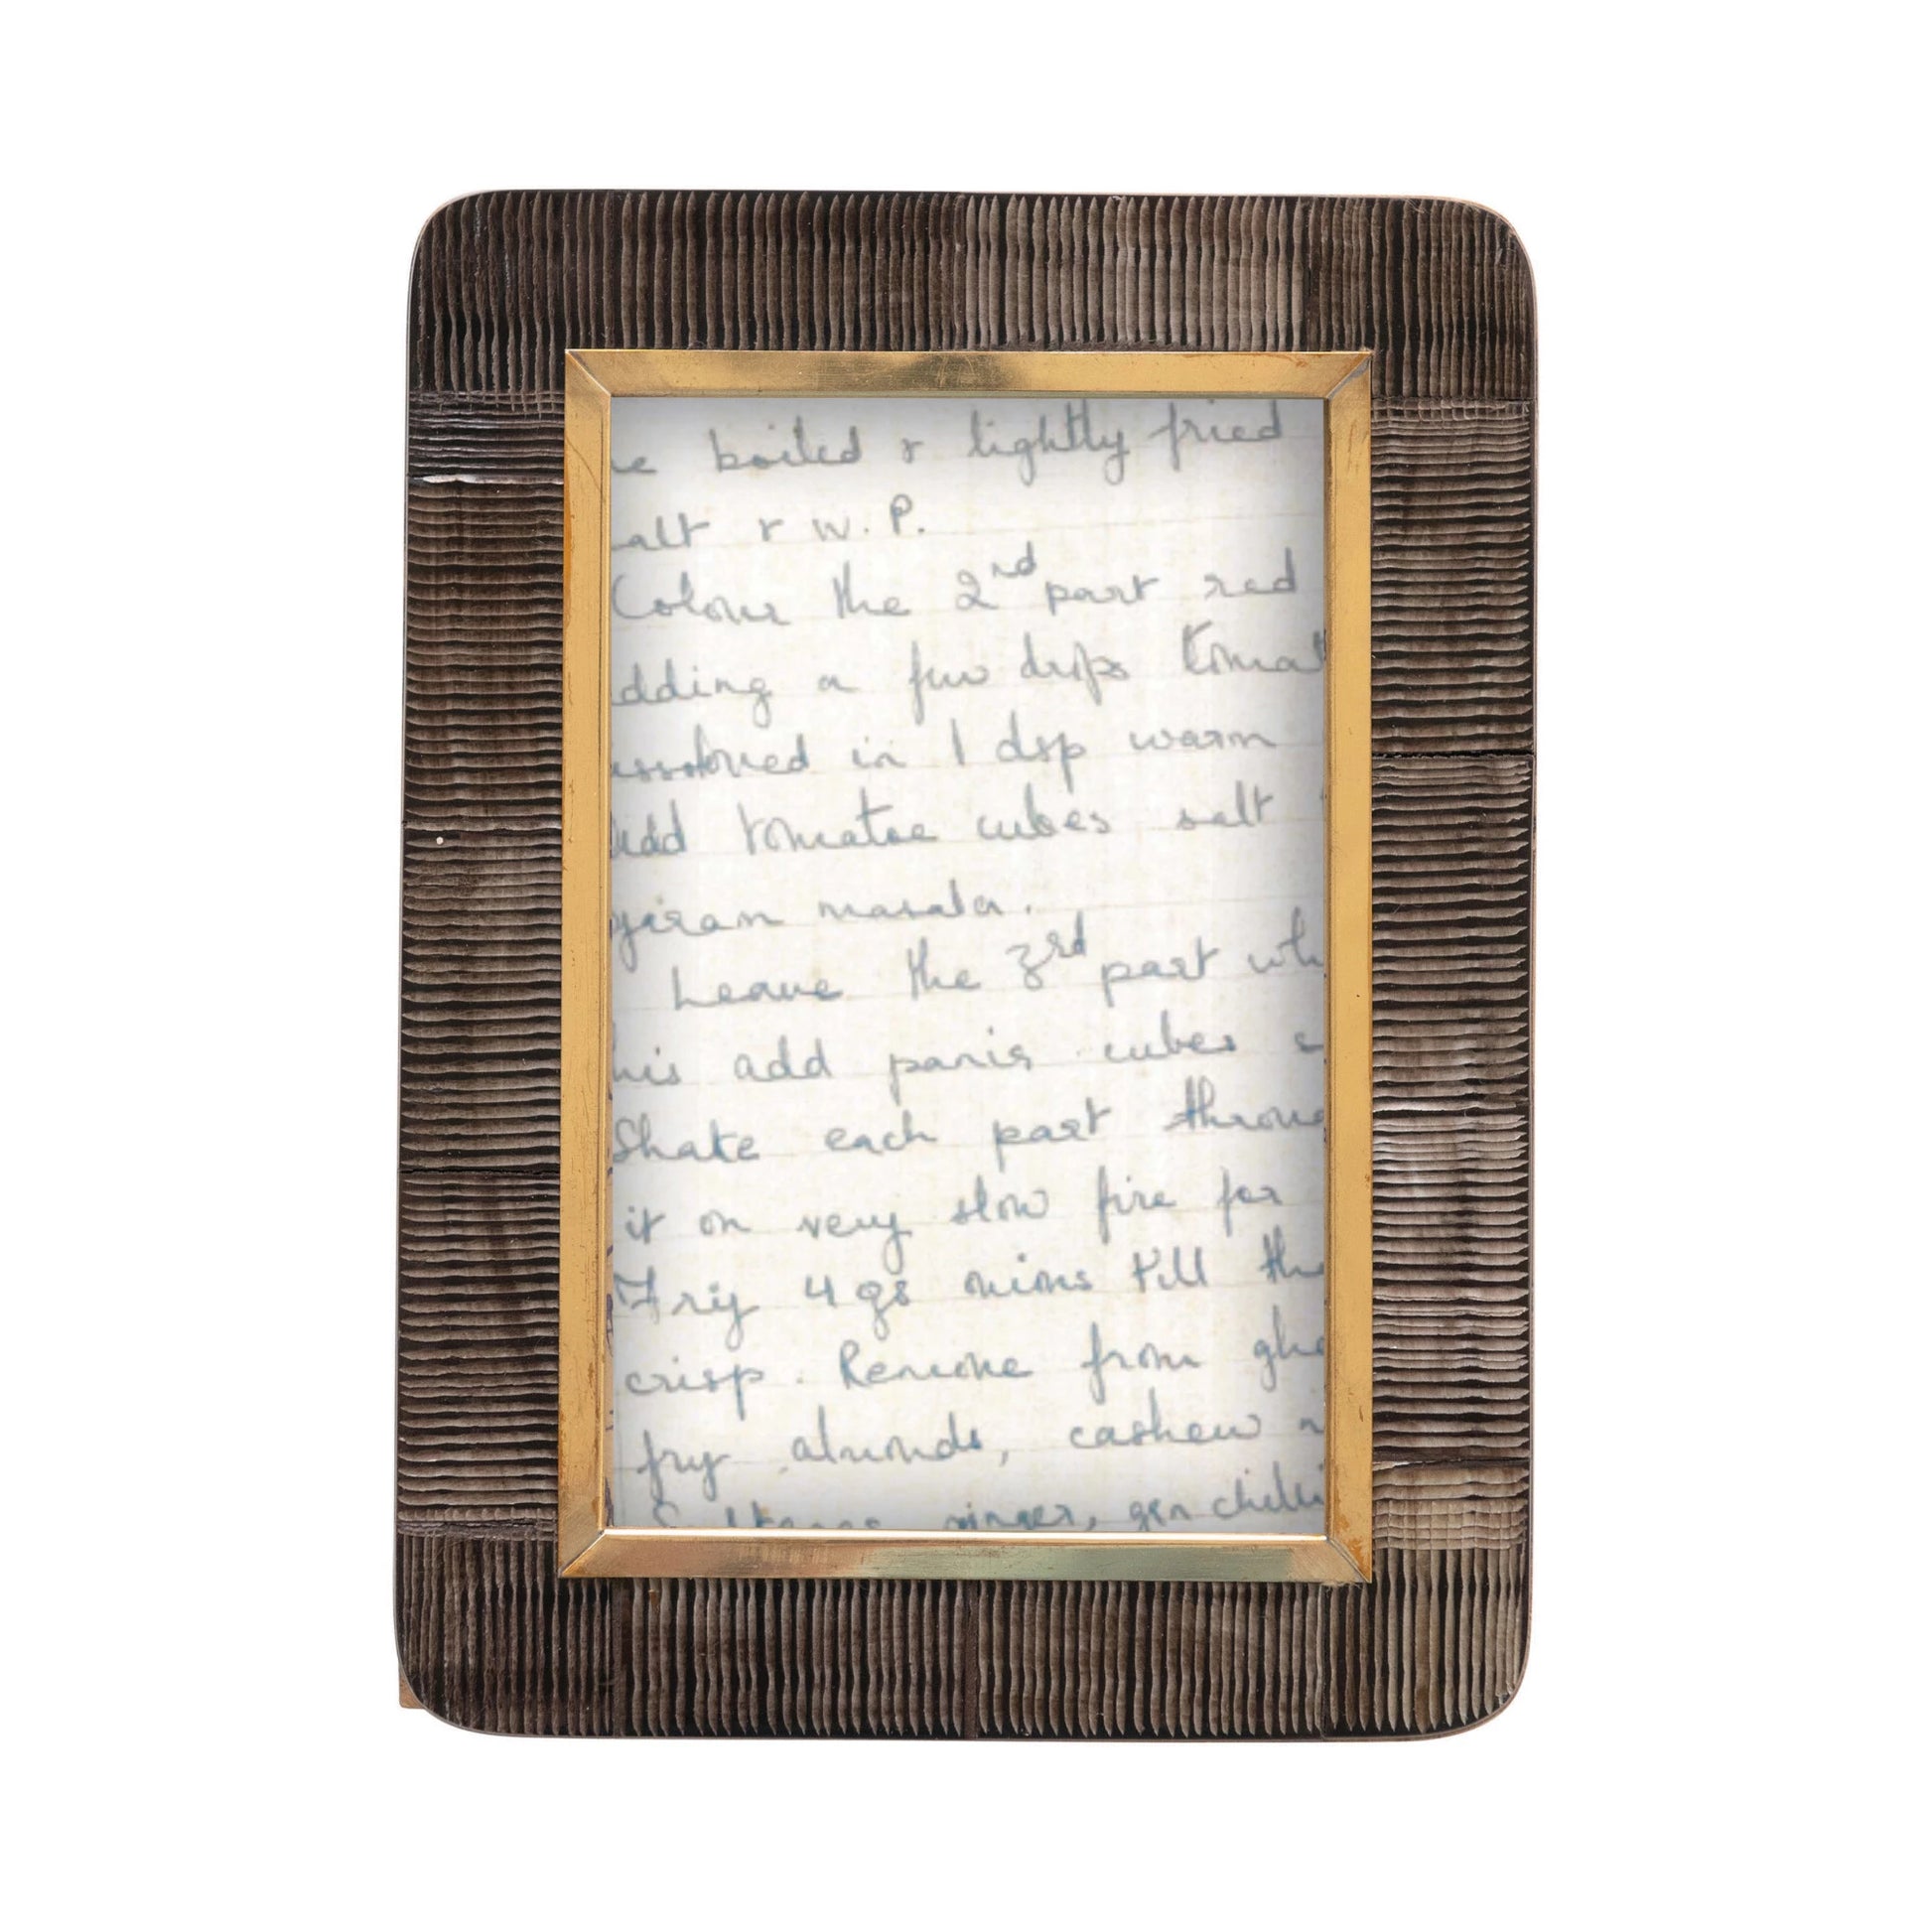 e boiled & lightly fried
alt & W.P.
Colour the 2nd part red
dding a few drops tomat
issolved in 1 dsp warm
Add tomatoe cubes salt
garam masala.
Leave the 3rd part wh
his add panir cubes s
Shake each part throug
it on very slow fire for
Fry 4 onions till the
crisp. Remove from ghe
fry almonds, cashew n
Sultanas ginger, grn chilli